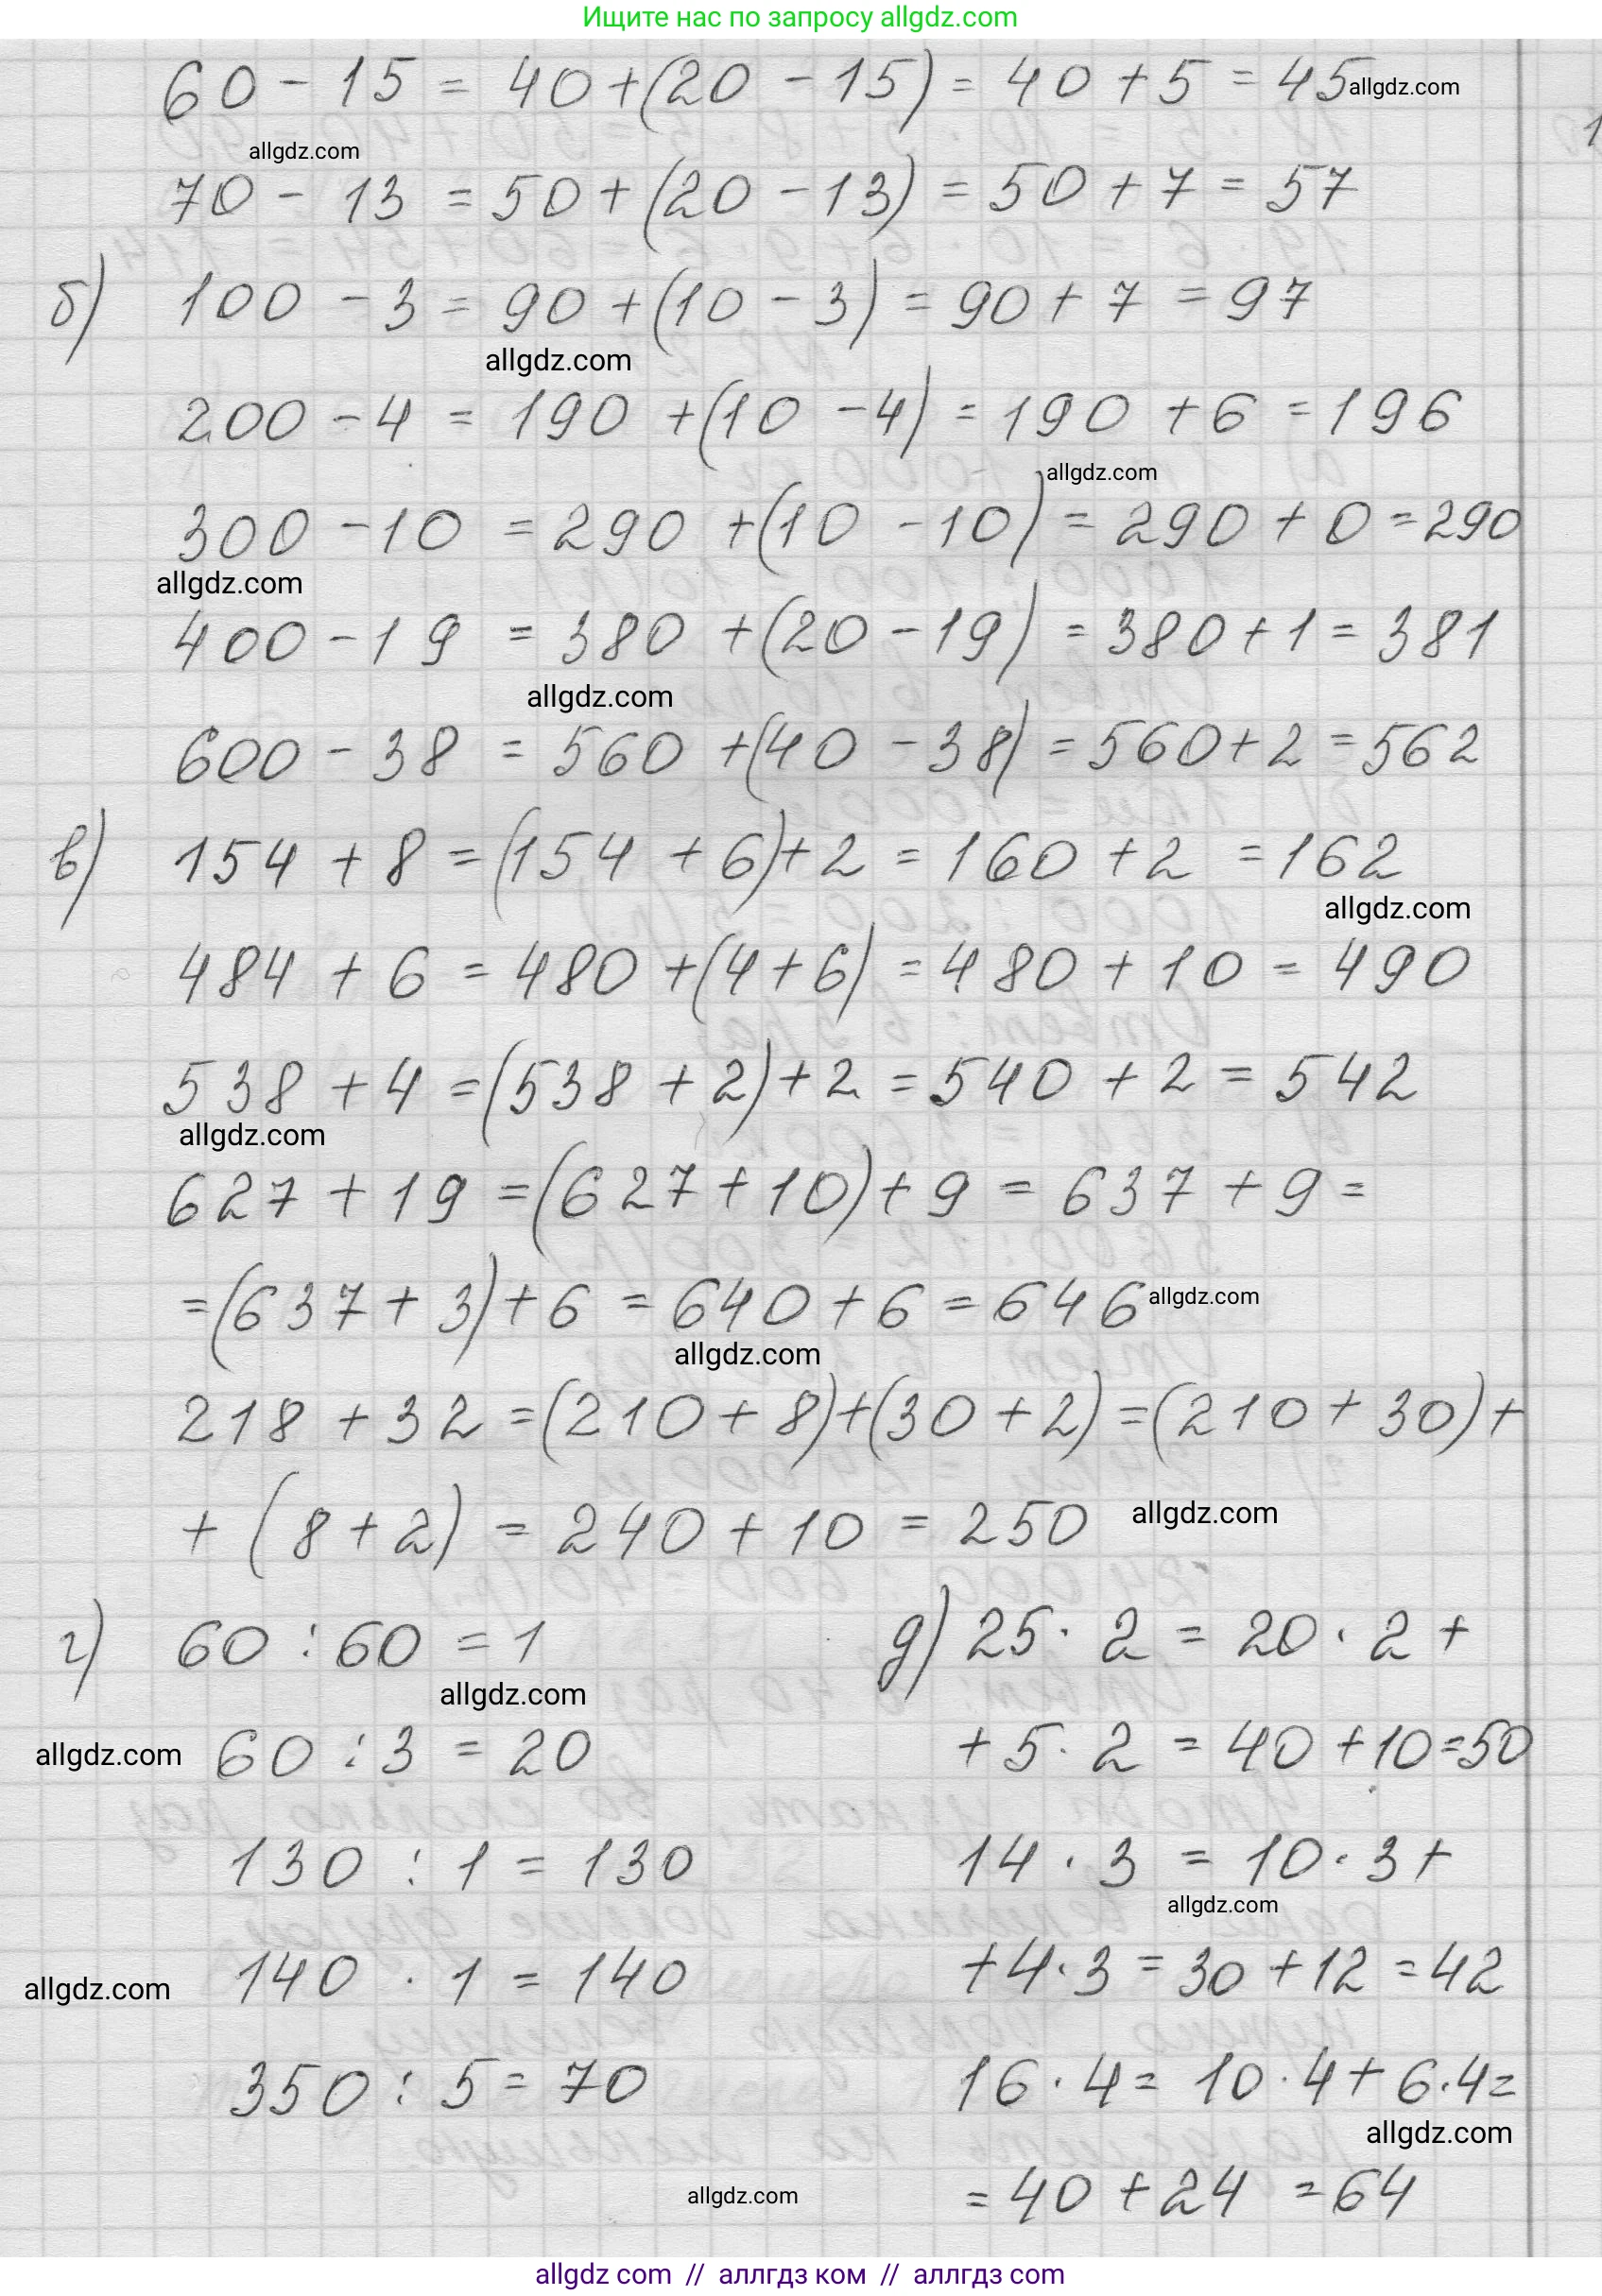 Ищите нас по запросу allgdz.com
60 - 15 = 40 + (20 - 15) = 40 + 5 = 45 allgdz.com
allgdz.com
70 - 13 = 50 + (20 - 13) = 50 + 7 = 57
б) 100 - 3 = 90 + (10 - 3) = 90 + 7 = 97
allgdz.com
200 - 4 = 190 + (10 - 4) = 190 + 6 = 196
allgdz.com
300 - 10 = 290 + (10 - 10) = 290 + 0 = 290
allgdz.com
400 - 19 = 380 + (20 - 19) = 380 + 1 = 381
allgdz.com
600 - 38 = 560 + (40 - 38) = 560 + 2 = 562
в) 154 + 8 = (154 + 6) + 2 = 160 + 2 = 162
allgdz.com
484 + 6 = 480 + (4 + 6) = 480 + 10 = 490
538 + 4 = (538 + 2) + 2 = 540 + 2 = 542
allgdz.com
627 + 19 = (627 + 10) + 9 = 637 + 9 =
= (637 + 3) + 6 = 640 + 6 = 646 allgdz.com
allgdz.com
218 + 32 = (210 + 8) + (30 + 2) = (210 + 30) +
+ (8 + 2) = 240 + 10 = 250 allgdz.com
г) 60 : 60 = 1
allgdz.com
allgdz.com 60 : 3 = 20
130 : 1 = 130
allgdz.com 140 · 1 = 140
350 : 5 = 70
д) 25 · 2 = 20 · 2 +
+ 5 · 2 = 40 + 10 = 50
14 · 3 = 10 · 3 +
allgdz.com
+ 4 · 3 = 30 + 12 = 42
16 · 4 = 10 · 4 + 6 · 4 =
allgdz.com
= 40 + 24 = 64
allgdz.com
allgdz com // аллгдз ком // аллгдз com